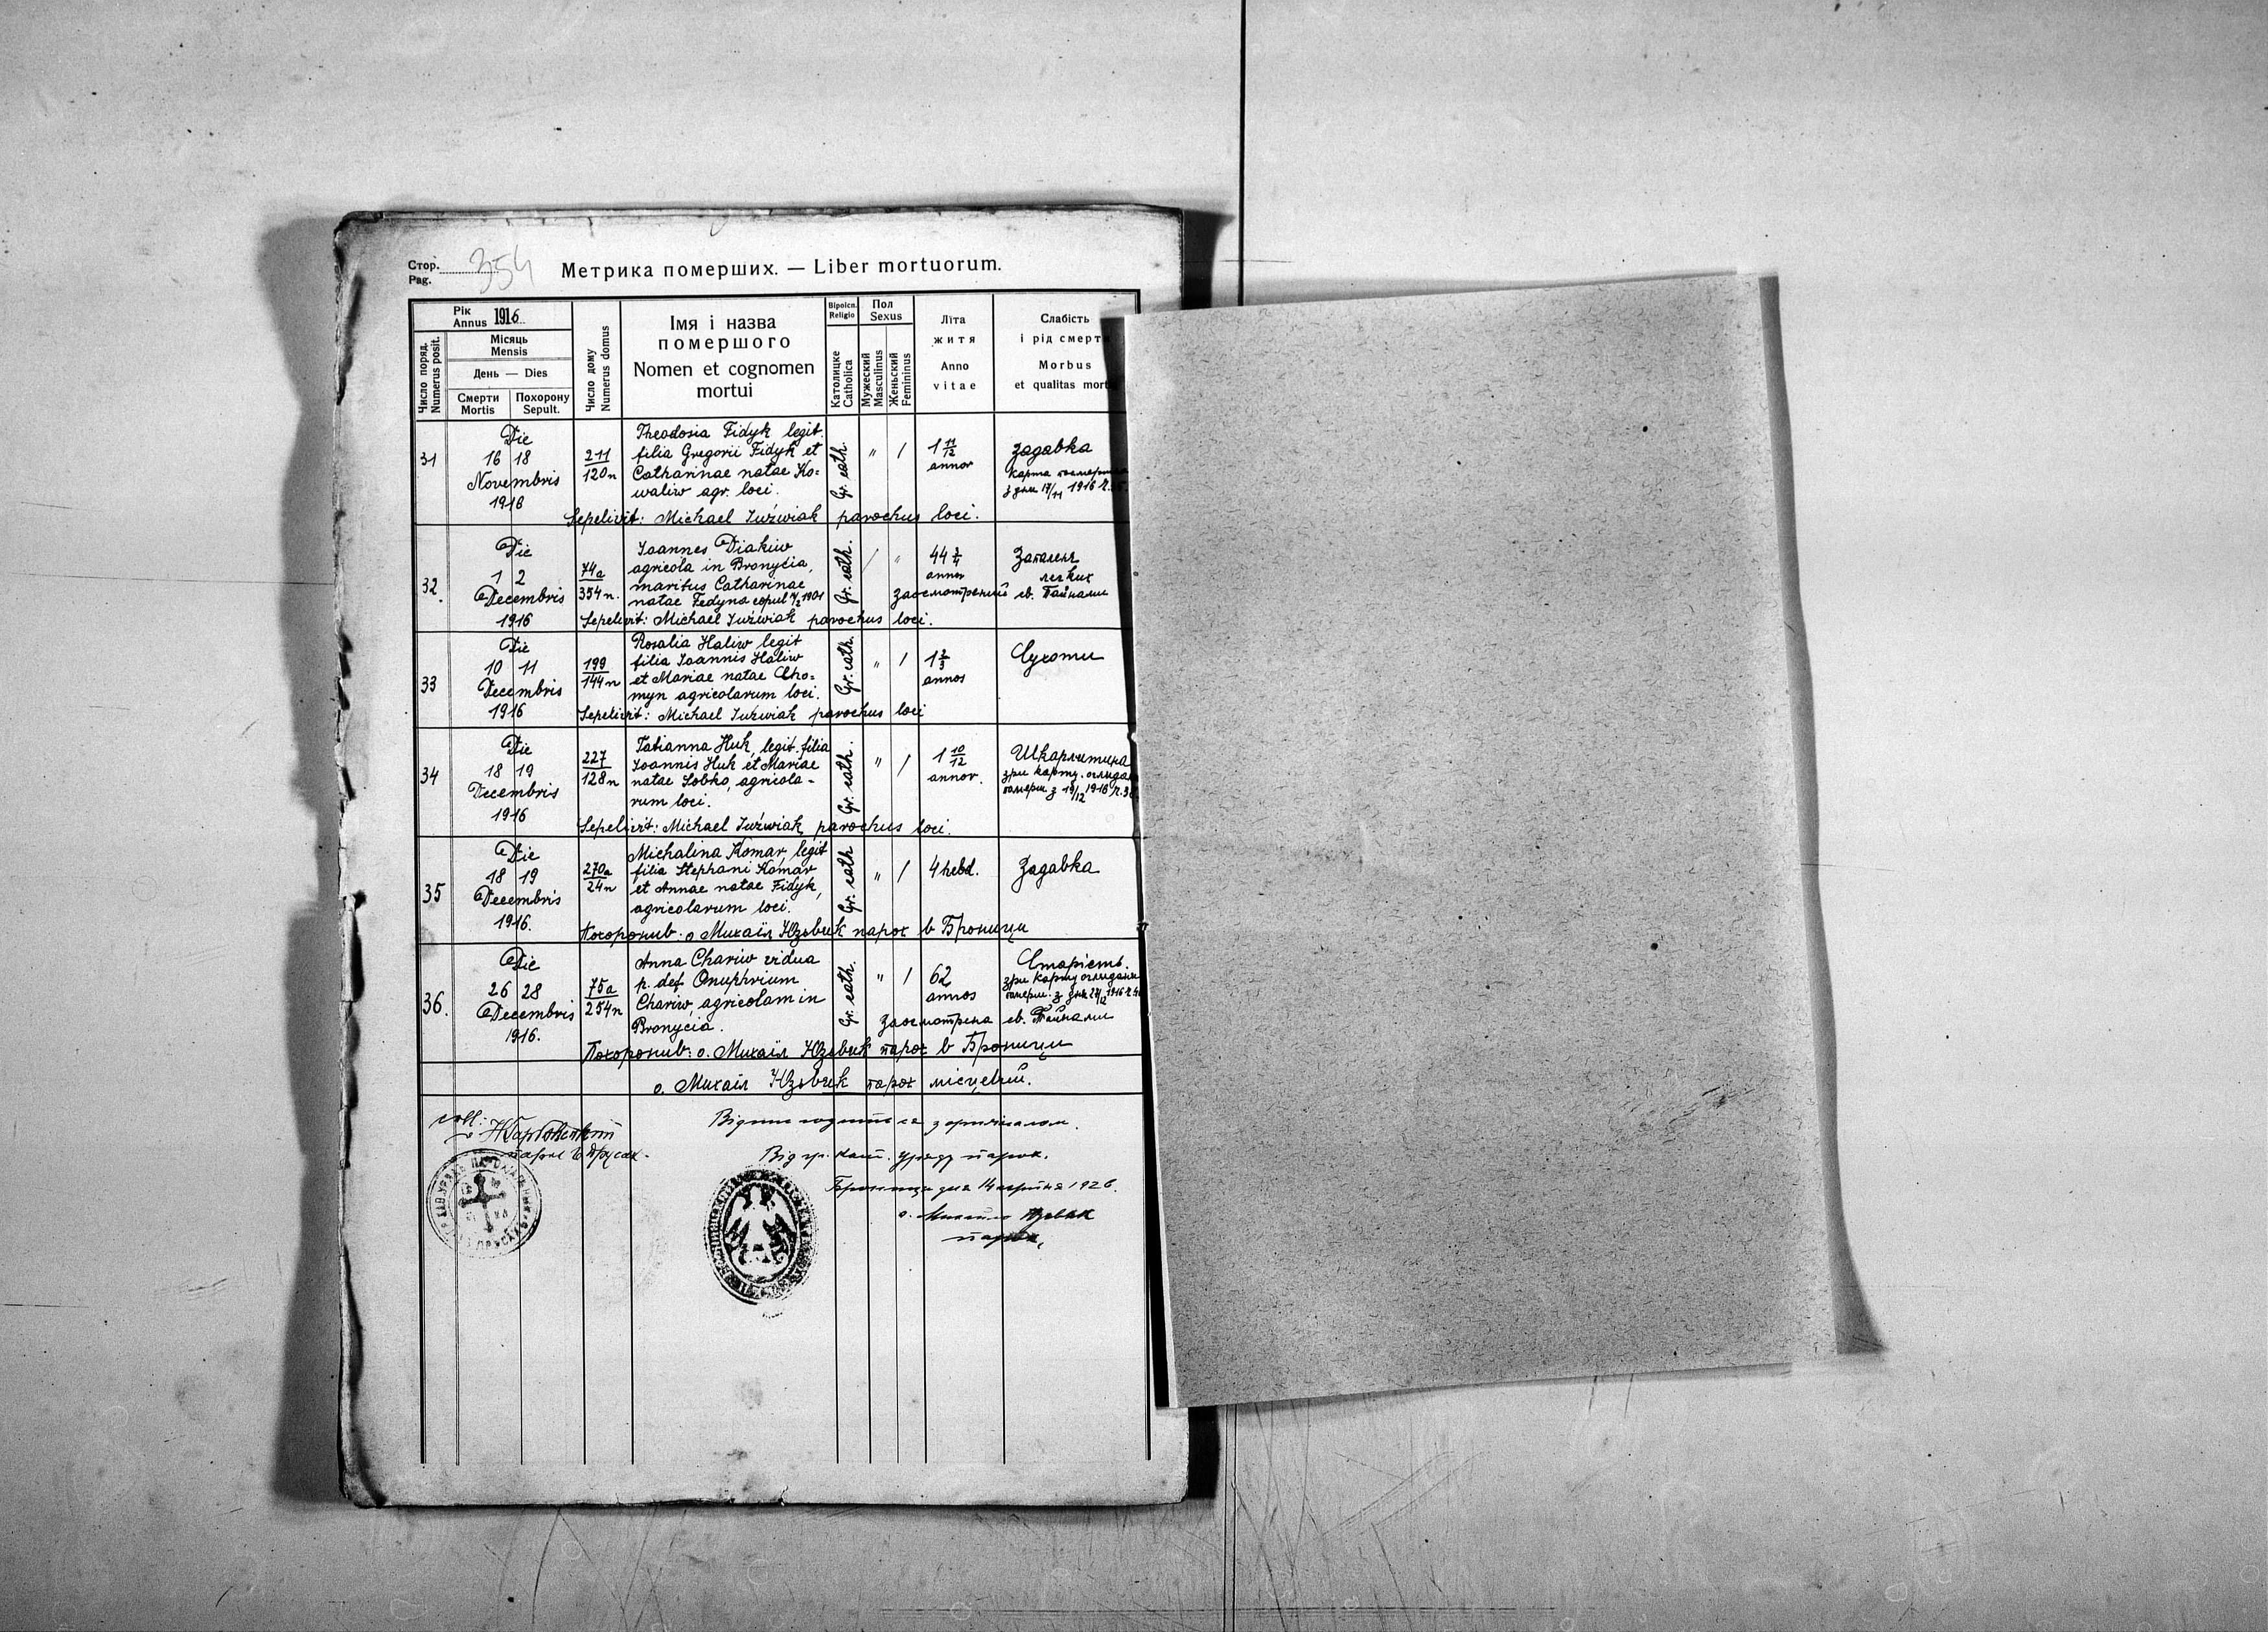 Стор. 354
Pag.
Метрика померших. — Liber mortuorum.
Рік
Annus 1916
Число поряд.
Numerus posit.
Місяць
Mensis
День — Dies
Смерти
Mortis
Похорону
Sepult.
Число дому
Numerus domus
Імя і назва
помершого
Nomen et cognomen
mortui
Віроісп.
Religio
Католицке
Catholica
Пол
Sexus
Мужеский
Masculinus
Женьский
Femininus
Літа
житя
Anno
vitae
Слабість
і рід смерт
Morbus
et qualitas mort
31
Die
16 18
Novembris
1916
211
120n
Theodosia Fidyk legit.
filia Gregorii Fidyk et
Catharinae natae Ko=
waliw agr. loci.
Gr. cath.
" /
1 11/12
annor
Задавка
карта
з дня 17/11 1916 ч.
Sepelivit: Michael Juźwiak parochus loci.
32.
Die
1 2
Decembris
1916
74a
354n.
Joannes Diakiw
agricola in Bronycia,
maritus Catharinae
natae Fedyna copul 1901
Gr. cath.
/ "
44 3/4
annor
Запаленя
легких
Заосмотрений св. Тайнами
Sepelivit: Michael Juźwiak parochus loci.
33
Die
10 11
Decembris
1916
199
144n
Rosalia Haliw legit
filia Joannis Haliw
et Mariae natae Cho=
myn agricolarum loci.
Gr. cath.
" /
1 2/3
annos
Сухоти
Sepelivit: Michael Juźwiak parochus loci
34
Die
18 19
Decembris
1916
227
128n
Tatianna Huk, legit. filia
Joannis Huk et Mariae
natae Sobko, agricola-
rum loci.
Gr. cath.
" /
1 10/12
annor.
Шкарлятина
зри карту оглядан
помер. з 19/12 1916 ч.
Sepelivit: Michael Juźwiak, parochus loci.
35
Die
18 19
Decembris
1916.
270a
24n
Michalina Komar, legit
filia Stephani Komar
et Annae natae Fidyk,
agricolarum loci.
Gr. cath
" /
4 hebd.
Задавка
Похоронив: о Михаіл Юзьвяк парох в Броници
36.
Die
26 28
Decembris
1916.
75a
254n
Anna Chariw vidua
p. def. Onuphrium
Chariw, agricolam in
Bronycia.
Gr. cath.
" /
62
annos
Старість.
зри карту оглядани
помер. з дня 27/12 1916 ч.
Заосмотрена св. Тайнами
Похоронив: о. Михаіл Юзьвяк парох в Броници
о. Михаіл Юзьвяк парох місцевий.
coll:
парох в Прусах.
Відпис годить ся з оригіналом.
Від гр. кат. уряду парох.
Брониця дня 14 серпня 1926.
о. Михайло Юзьвяк
парох,